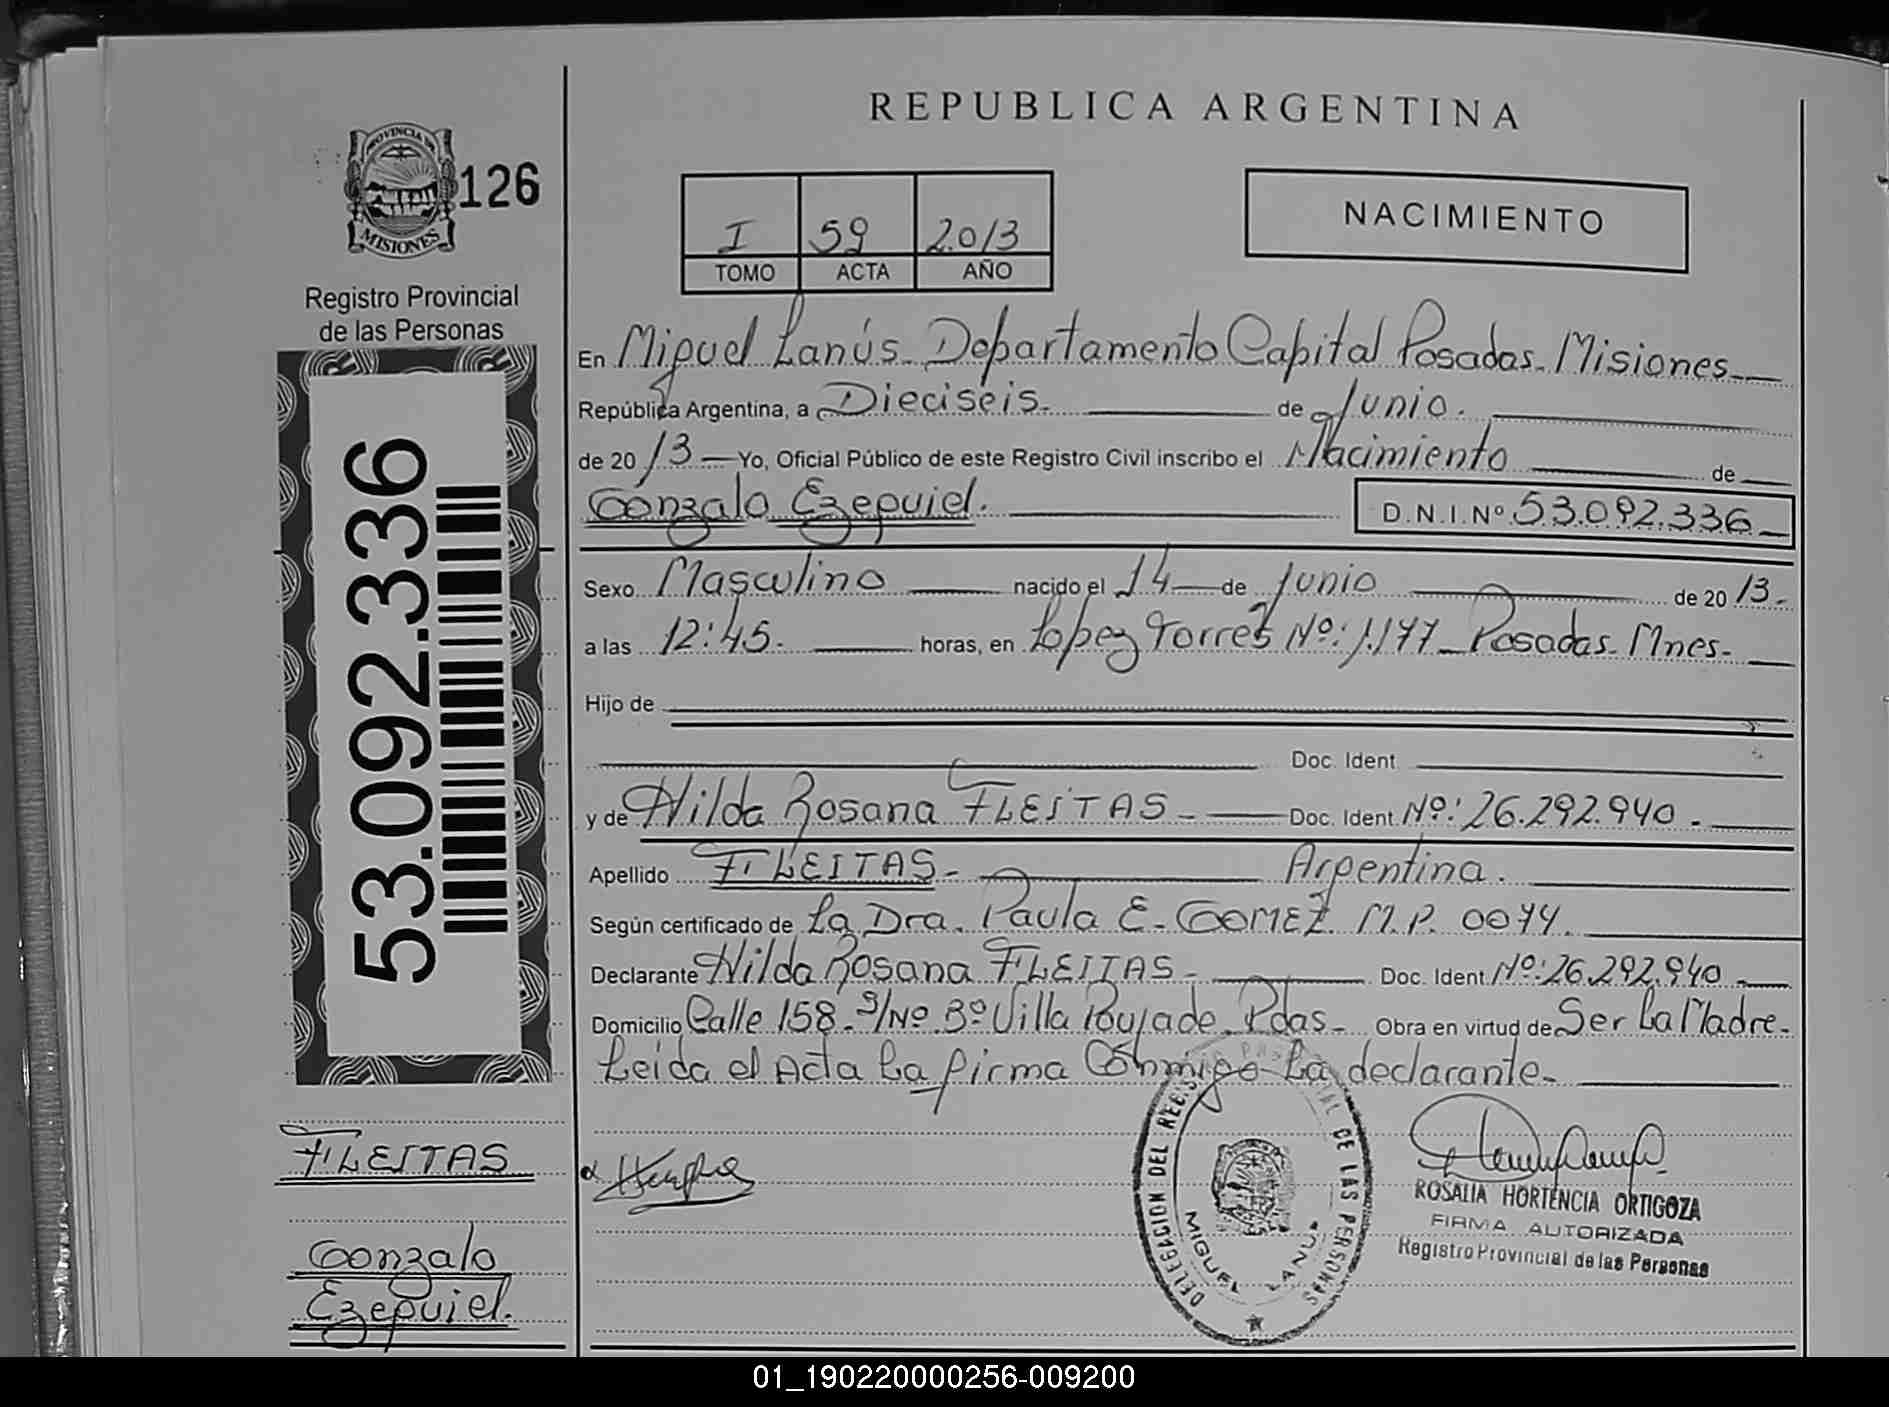 REPUBLICA ARGENTINA
PROVINCIA DE
MISIONES
126
Registro Provincial
de las Personas
53.092.336
I 59 2013
TOMO ACTA AÑO
NACIMIENTO
En Miguel Lanús. Departamento Capital Posadas. Misiones
República Argentina, a Dieciséis. de Junio.
de 2013 Yo, Oficial Público de este Registro Civil inscribo el Nacimiento de
Gonzalo Ezequiel. D.N.I.Nº 53.092.336
Sexo Masculino nacido el 14 de Junio de 2013.
a las 12:45. horas, en Lopez Torres Nº: 1.177 Posadas. Mnes.
Hijo de
Doc. Ident
y de Hilda Rosana FLEITAS Doc. Ident. Nº: 26.292.940.
Apellido FLEITAS Argentina.
Según certificado de La Dra. Paula E. GOMEZ M.P. 0074.
Declarante Hilda Rosana FLEITAS Doc. Ident Nº: 26.292.940
Domicilio Calle 158 S/Nº Bº Villa Poujade. Pdas. Obra en virtud de Ser La Madre.
Leída el Acta La firma Conmigo La declarante.
FLEITAS
Gonzalo
Ezequiel.
DELEGACION DEL REGISTRO PROVINCIAL DE LAS PERSONAS
MIGUEL LANUS
ROSALIA HORTENCIA ORTIGOZA
FIRMA AUTORIZADA
Registro Provincial de las Personas
01_190220000256-009200